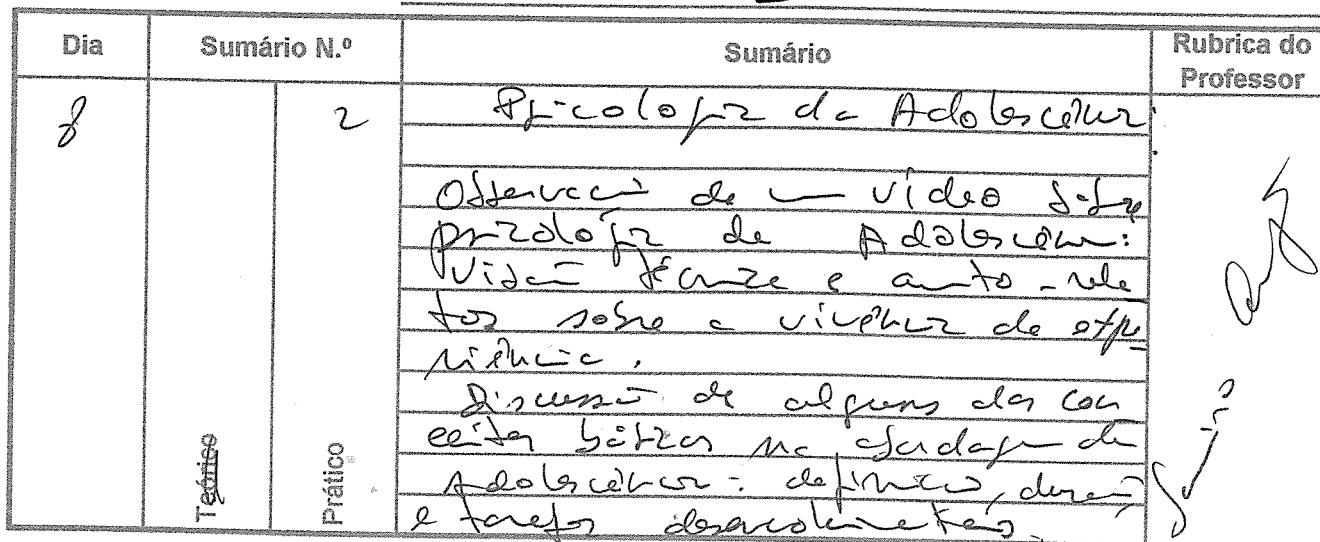 Dia Sumário N.º Sumário Rubrica do Professor
8 2 Psicologia da Adolescência.
Observação de um vídeo sobre
psicologia da Adolescência:
Visão técnica e auto-rela
tos sobre a vivência da expe
riência.
Discussão de alguns dos con
ceitos básicos na abordagem da
Adolescência: definição, duração
e tarefas desenvolvimentais.
Teórico
Prático